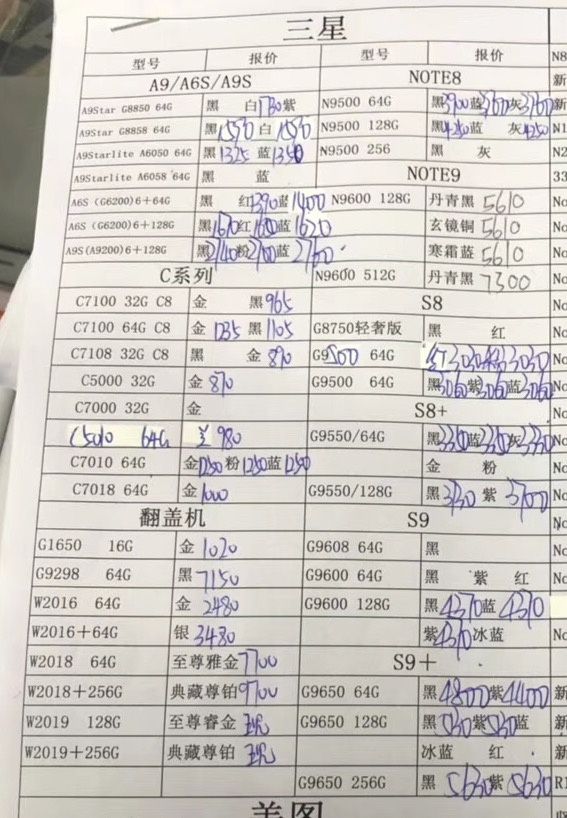 三星
型号 报价 型号 报价
A9/A6S/A9S NOTE8
A9Star G8850 64G 黑 白1730紫 N9500 64G 黑3900蓝3870灰3760
A9Star G8858 64G 黑1550白1550 N9500 128G 黑4250蓝 灰4250
A9Starlite A6050 64G 黑1325蓝1350 N9500 256 黑 灰
A9Starlite A6058 64G 黑 蓝 NOTE9
A6S (G6200)6+64G 黑 红1390蓝1400 N9600 128G 丹青黑5610
A6S (G6200)6+128G 黑1670红1600蓝1620 玄镜铜5610
A9S(A9200)6+128G 黑2140粉2700蓝2760 寒霜蓝5610
C系列 N9600 512G 丹青黑7300
C7100 32G C8 金 黑965 S8
C7100 64G C8 金1235黑1105 G8750轻奢版 黑 红
C7108 32G C8 黑 金890 G9500 64G 红3030
C5000 32G 金870 G9500 64G 黑3060紫3060蓝3060
C7000 32G 金 S8+
C5010 64G 980 G9550/64G 黑3350蓝3350灰3350
C7010 64G 金1250粉1250蓝1250 金 粉
C7018 64G 金1000 G9550/128G 黑3730紫3700
翻盖机 S9
G1650 16G 金1020 G9608 64G 黑
G9298 64G 黑7150 G9600 64G 黑 紫 红
W2016 64G 金2480 G9600 128G 黑4370蓝4310
W2016+64G 银3480 紫4310冰蓝
W2018 64G 至尊雅金7700 S9+
W2018+256G 典藏尊铂9700 G9650 64G 黑4800紫4400
W2019 128G 至尊睿金 G9650 128G 黑5030紫5030蓝
W2019+256G 典藏尊铂 冰蓝 红
G9650 256G 黑5630紫5630